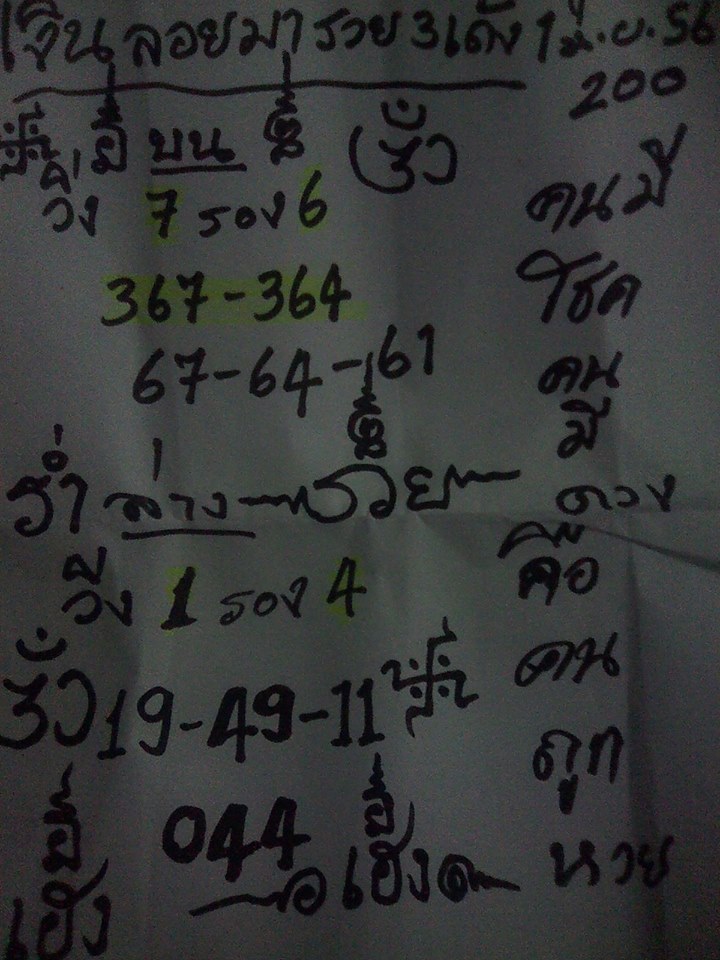 เงินลอยมา รวย 3 เด้ง 1 มิ.ย. 56
200
บน
วิ่ง 7 รอง 6
367-364
67-64-61
ร่ำ ล่าง รวย
วิ่ง 1 รอง 4
19-49-11
044
เฮง
เฮง
คนมี
โชค
คน
มี
ดวง
คือ
คน
ถูก
หวย